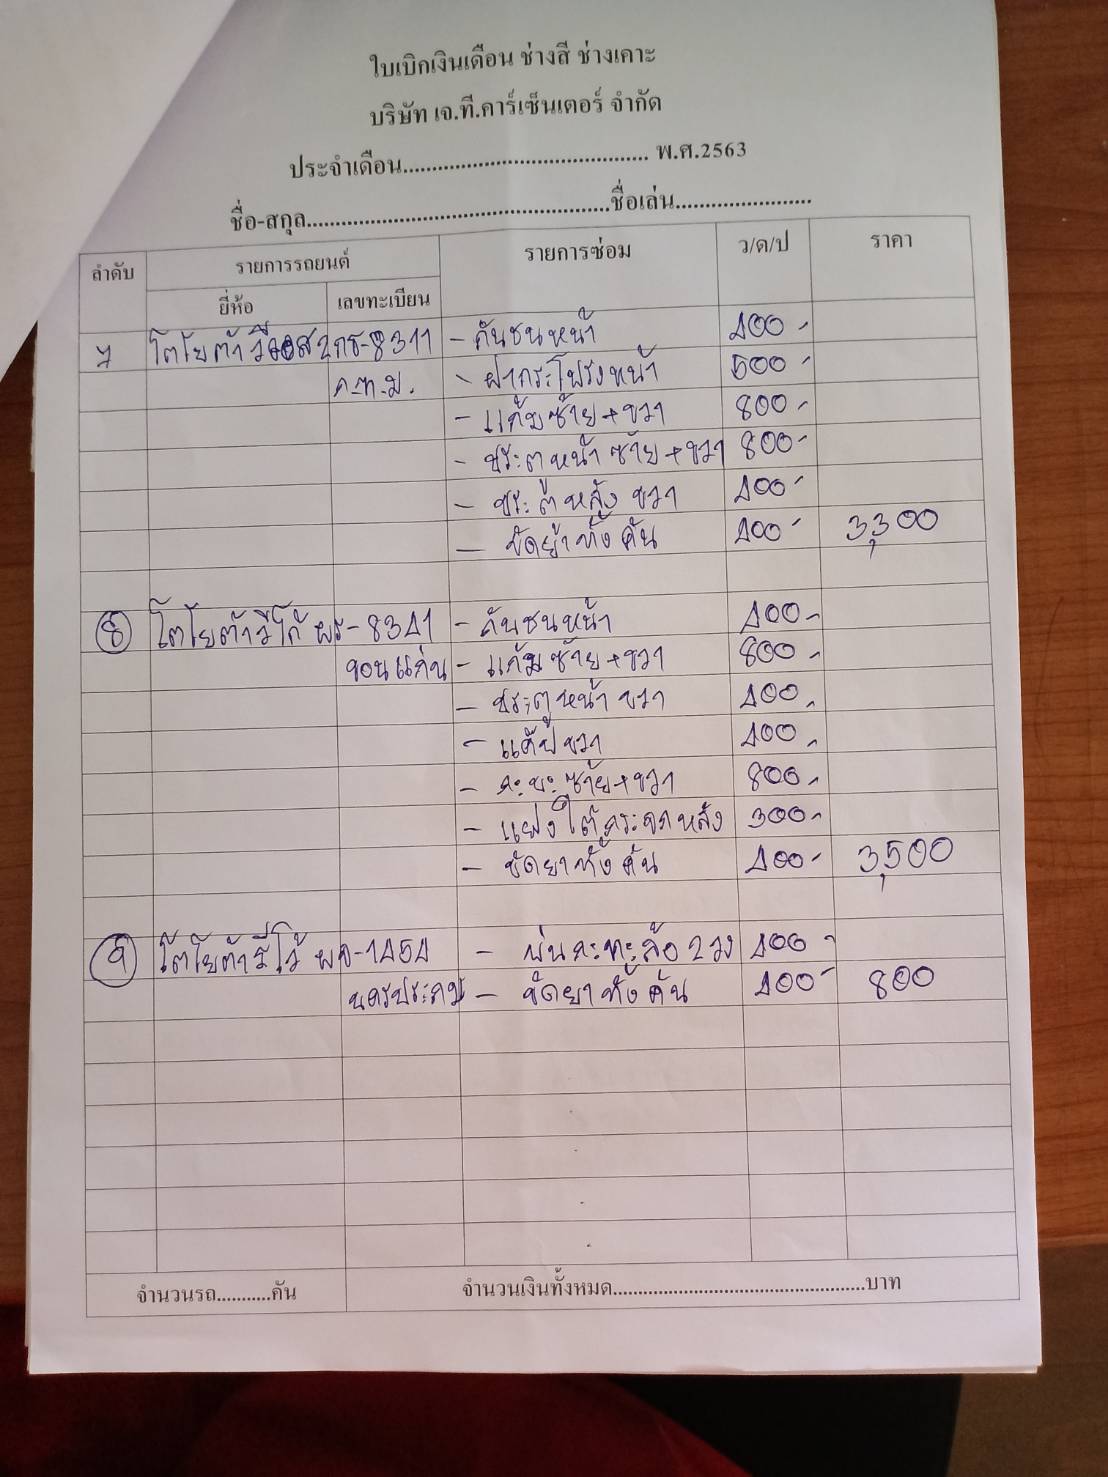 ใบเบิกเงินเดือน ช่างสี ช่างเคาะ
บริษัท เจ.ที.คาร์เซ็นเตอร์ จำกัด
ประจำเดือน.......................................... พ.ศ.2563
ชื่อ-สกุล....................................................ชื่อเล่น........................
ลำดับ รายการรถยนต์ รายการซ่อม ว/ด/ป ราคา
ยี่ห้อ เลขทะเบียน
7 โตโยต้า วีออส 2กธ-8311 - กันชนหน้า 400-
ก.ท.ม. - ฝากระโปรงหน้า 500-
- แก้มซ้าย+ขวา 800-
- ประตูหน้า ซ้าย+ขวา 800-
- ประตูหลัง ขวา 400-
- ขัดยาทั้งคัน 400- 3,300
8 โตโยต้าวีโก้ ผร-8341 - กันชนหน้า 400-
ขอนแก่น - แก้มซ้าย+ขวา 800-
- ประตูหน้า ขวา 400-
- แค้ปขวา 400-
- กะบะซ้าย+ขวา 800-
- แผงใต้กระจกหลัง 300-
- ขัดยาทั้งคัน 400- 3,500
9 โตโยต้ารีโว้ -1454 - พ่นกะทะล้อ 2 วง 400-
นครประถม - ขัดยาทั้งคัน 400- 800
จำนวนรถ...........คัน จำนวนเงินทั้งหมด..................................................บาท